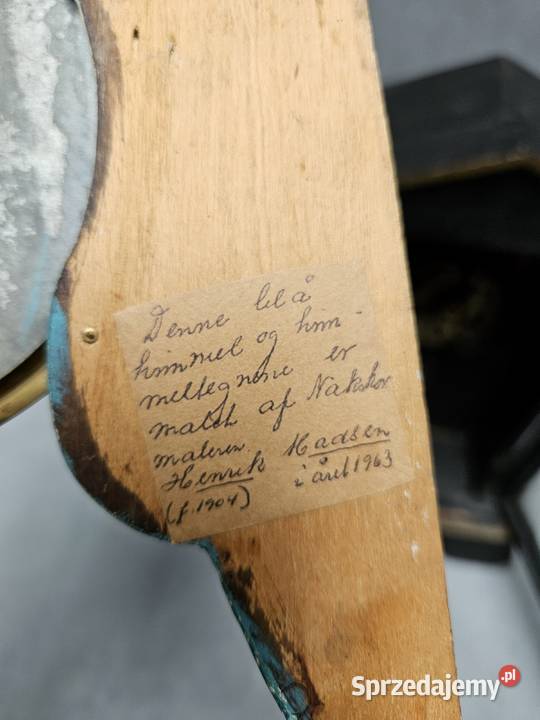 Denne blå
himmel og him-
meltegnene er
malet af Nakskov
maleren
Henrik Madsen
(f. 1904) i året 1963
Sprzedajemy.pl